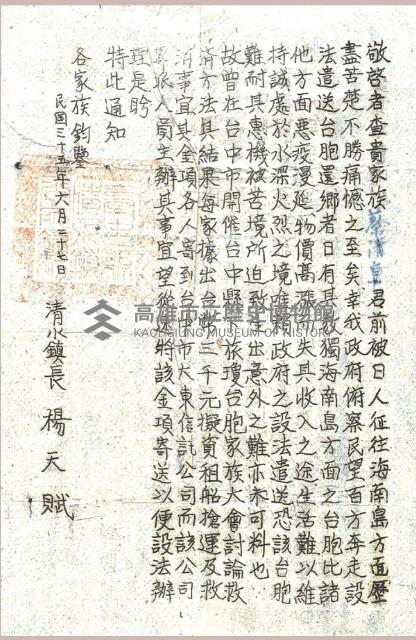 敬啓者查貴家族蔡清皇君前被日人征往海南島方面歷
盡苦楚不勝痛憾之至矣幸我政府俯察民望百方奔走設
法遣送台胞還鄉者日有其數獨海南島方面之台胞比諸
他方面惡疫漫延物價高飛而失其收入之途生活難以維
持誠處於水深火烈之境唯賴政府之設法遣送恐該台胞
難耐其惠機被苦境所迫致生出意外之難亦未可料也
故曾在台中市開催台中縣下旅瓊台胞家族大會討論救
濟方法其結果每家據出台幣三千元擬資租船搶運及救
濟事宜其金項各人寄到台中市大東信託公司而該公司
派人員主辦其事宜望從速將該金項寄送以便設法辦
理是盼
特此通知
各家族鈞鑒
民國三十五年六月二十七日
清水鎮長 楊天賦
高雄市立歷史博物館
KAOHSIUNG MUSEUM OF HISTORY